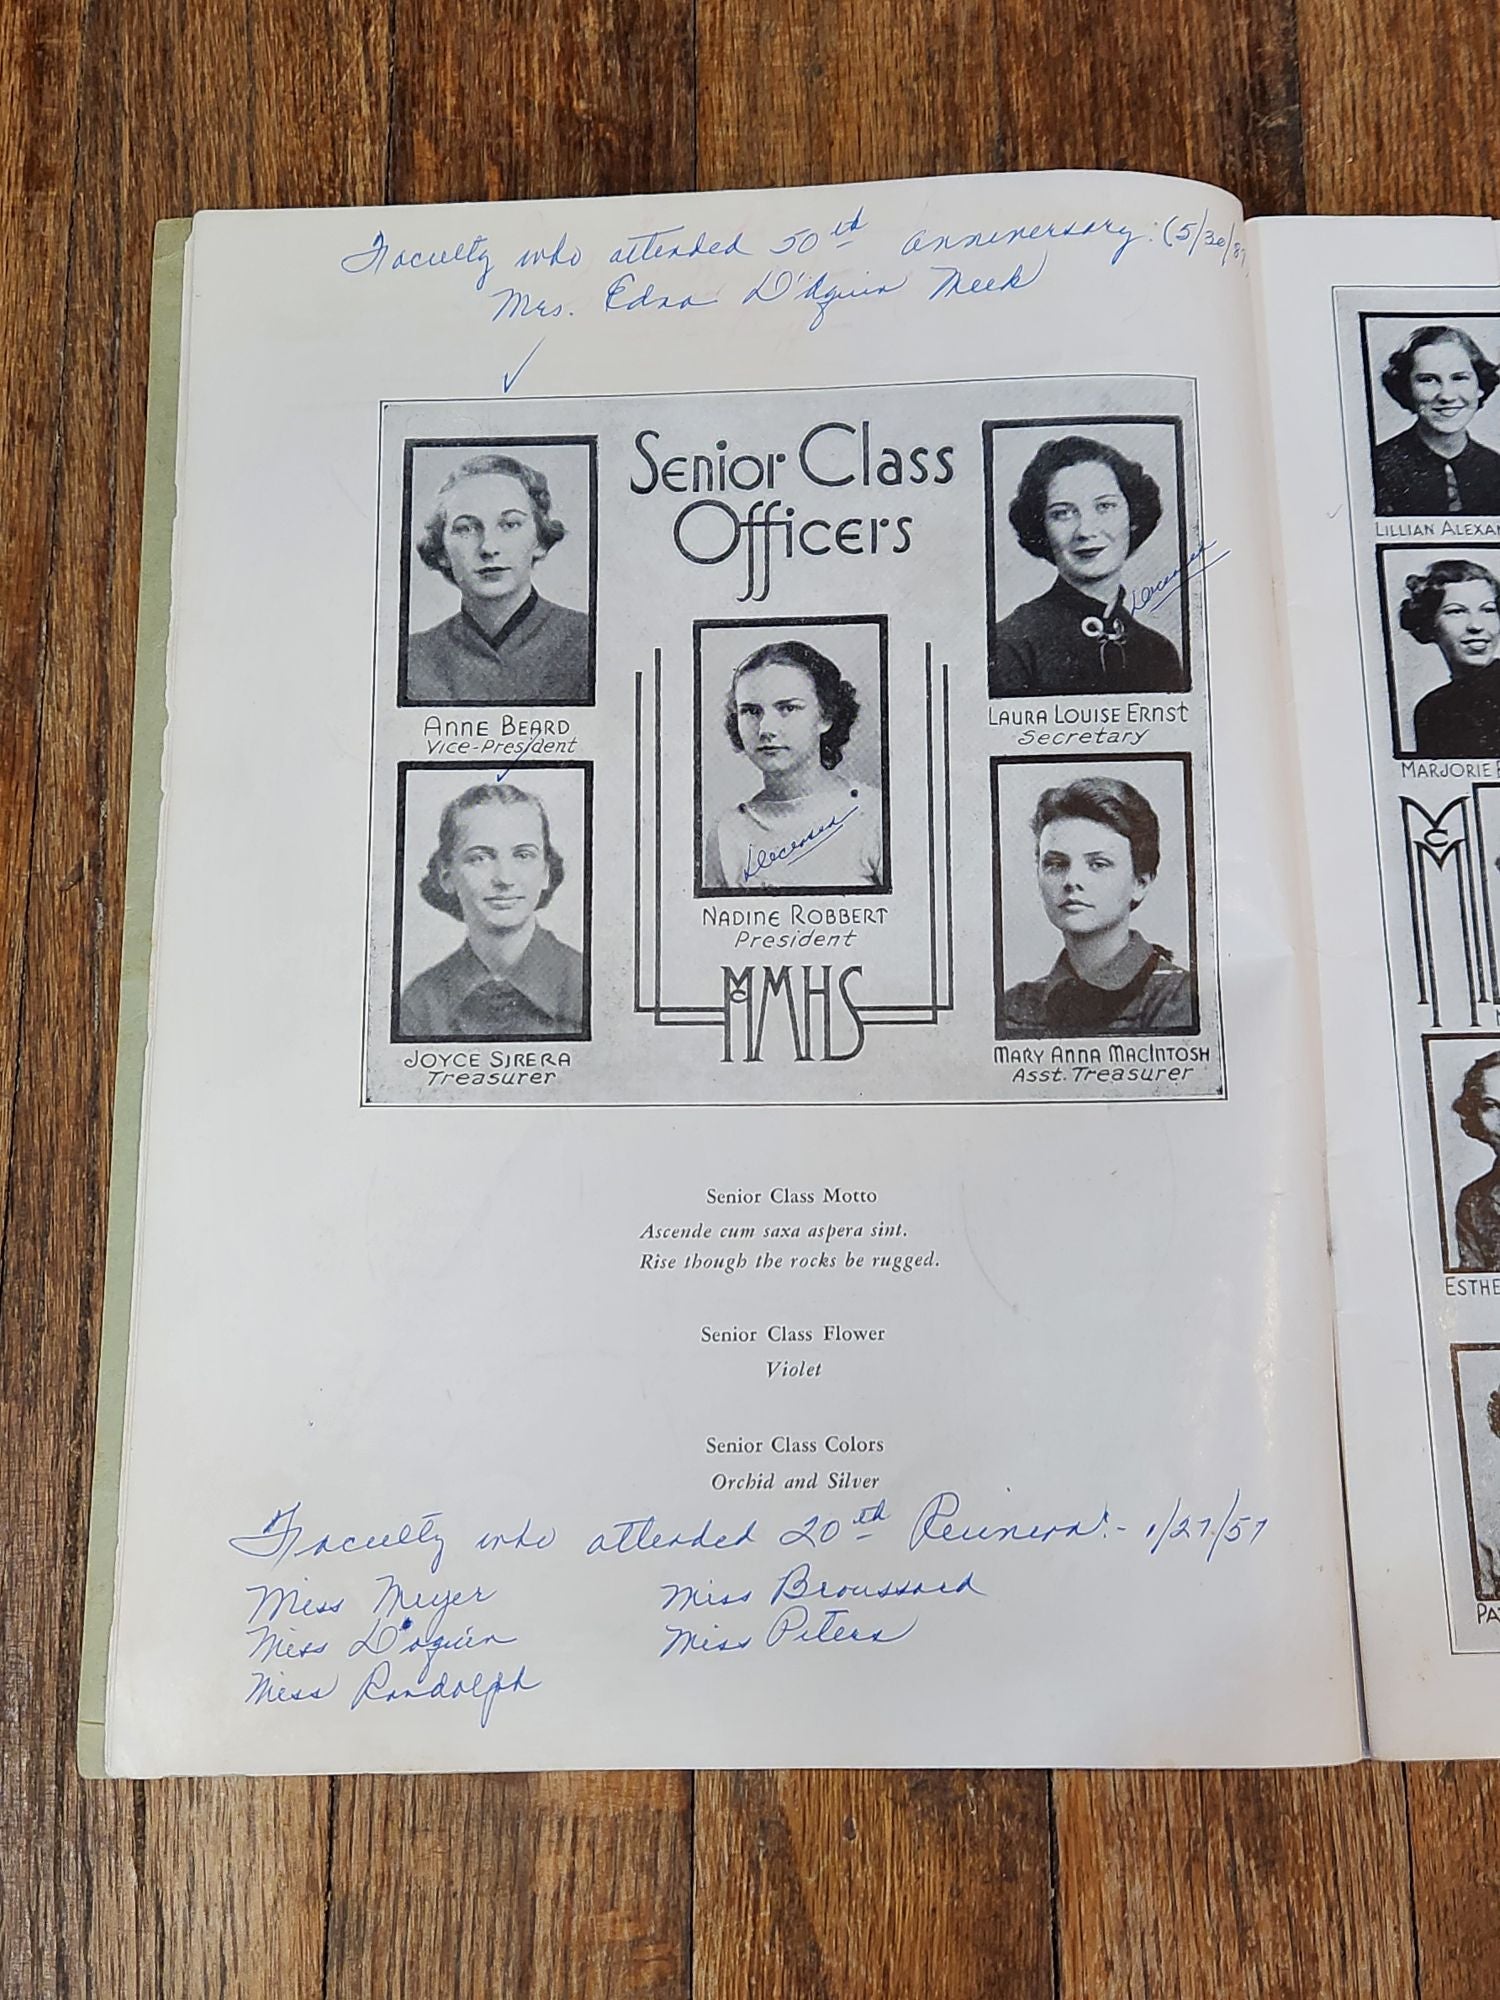 Faculty who attended 50th anniversary: (5/30/87)
Mrs. Edna D'Aquin Meek
Senior Class
Officers
Deceased
ANNE BEARD
Vice-President
LAURA LOUISE ERNST
Secretary
Deceased
NADINE ROBBERT
President
McMHS
JOYCE SIRERA
Treasurer
MARY ANNA MACINTOSH
Asst. Treasurer
Senior Class Motto
Ascende cum saxa aspera sint.
Rise though the rocks be rugged.
Senior Class Flower
Violet
Senior Class Colors
Orchid and Silver
Faculty who attended 20th Reunion:- 1/27/57
Miss Meyer Miss Broussard
Miss D'Aquin Miss Peters
Miss Randolph
LILLIAN
MARJORIE
McM